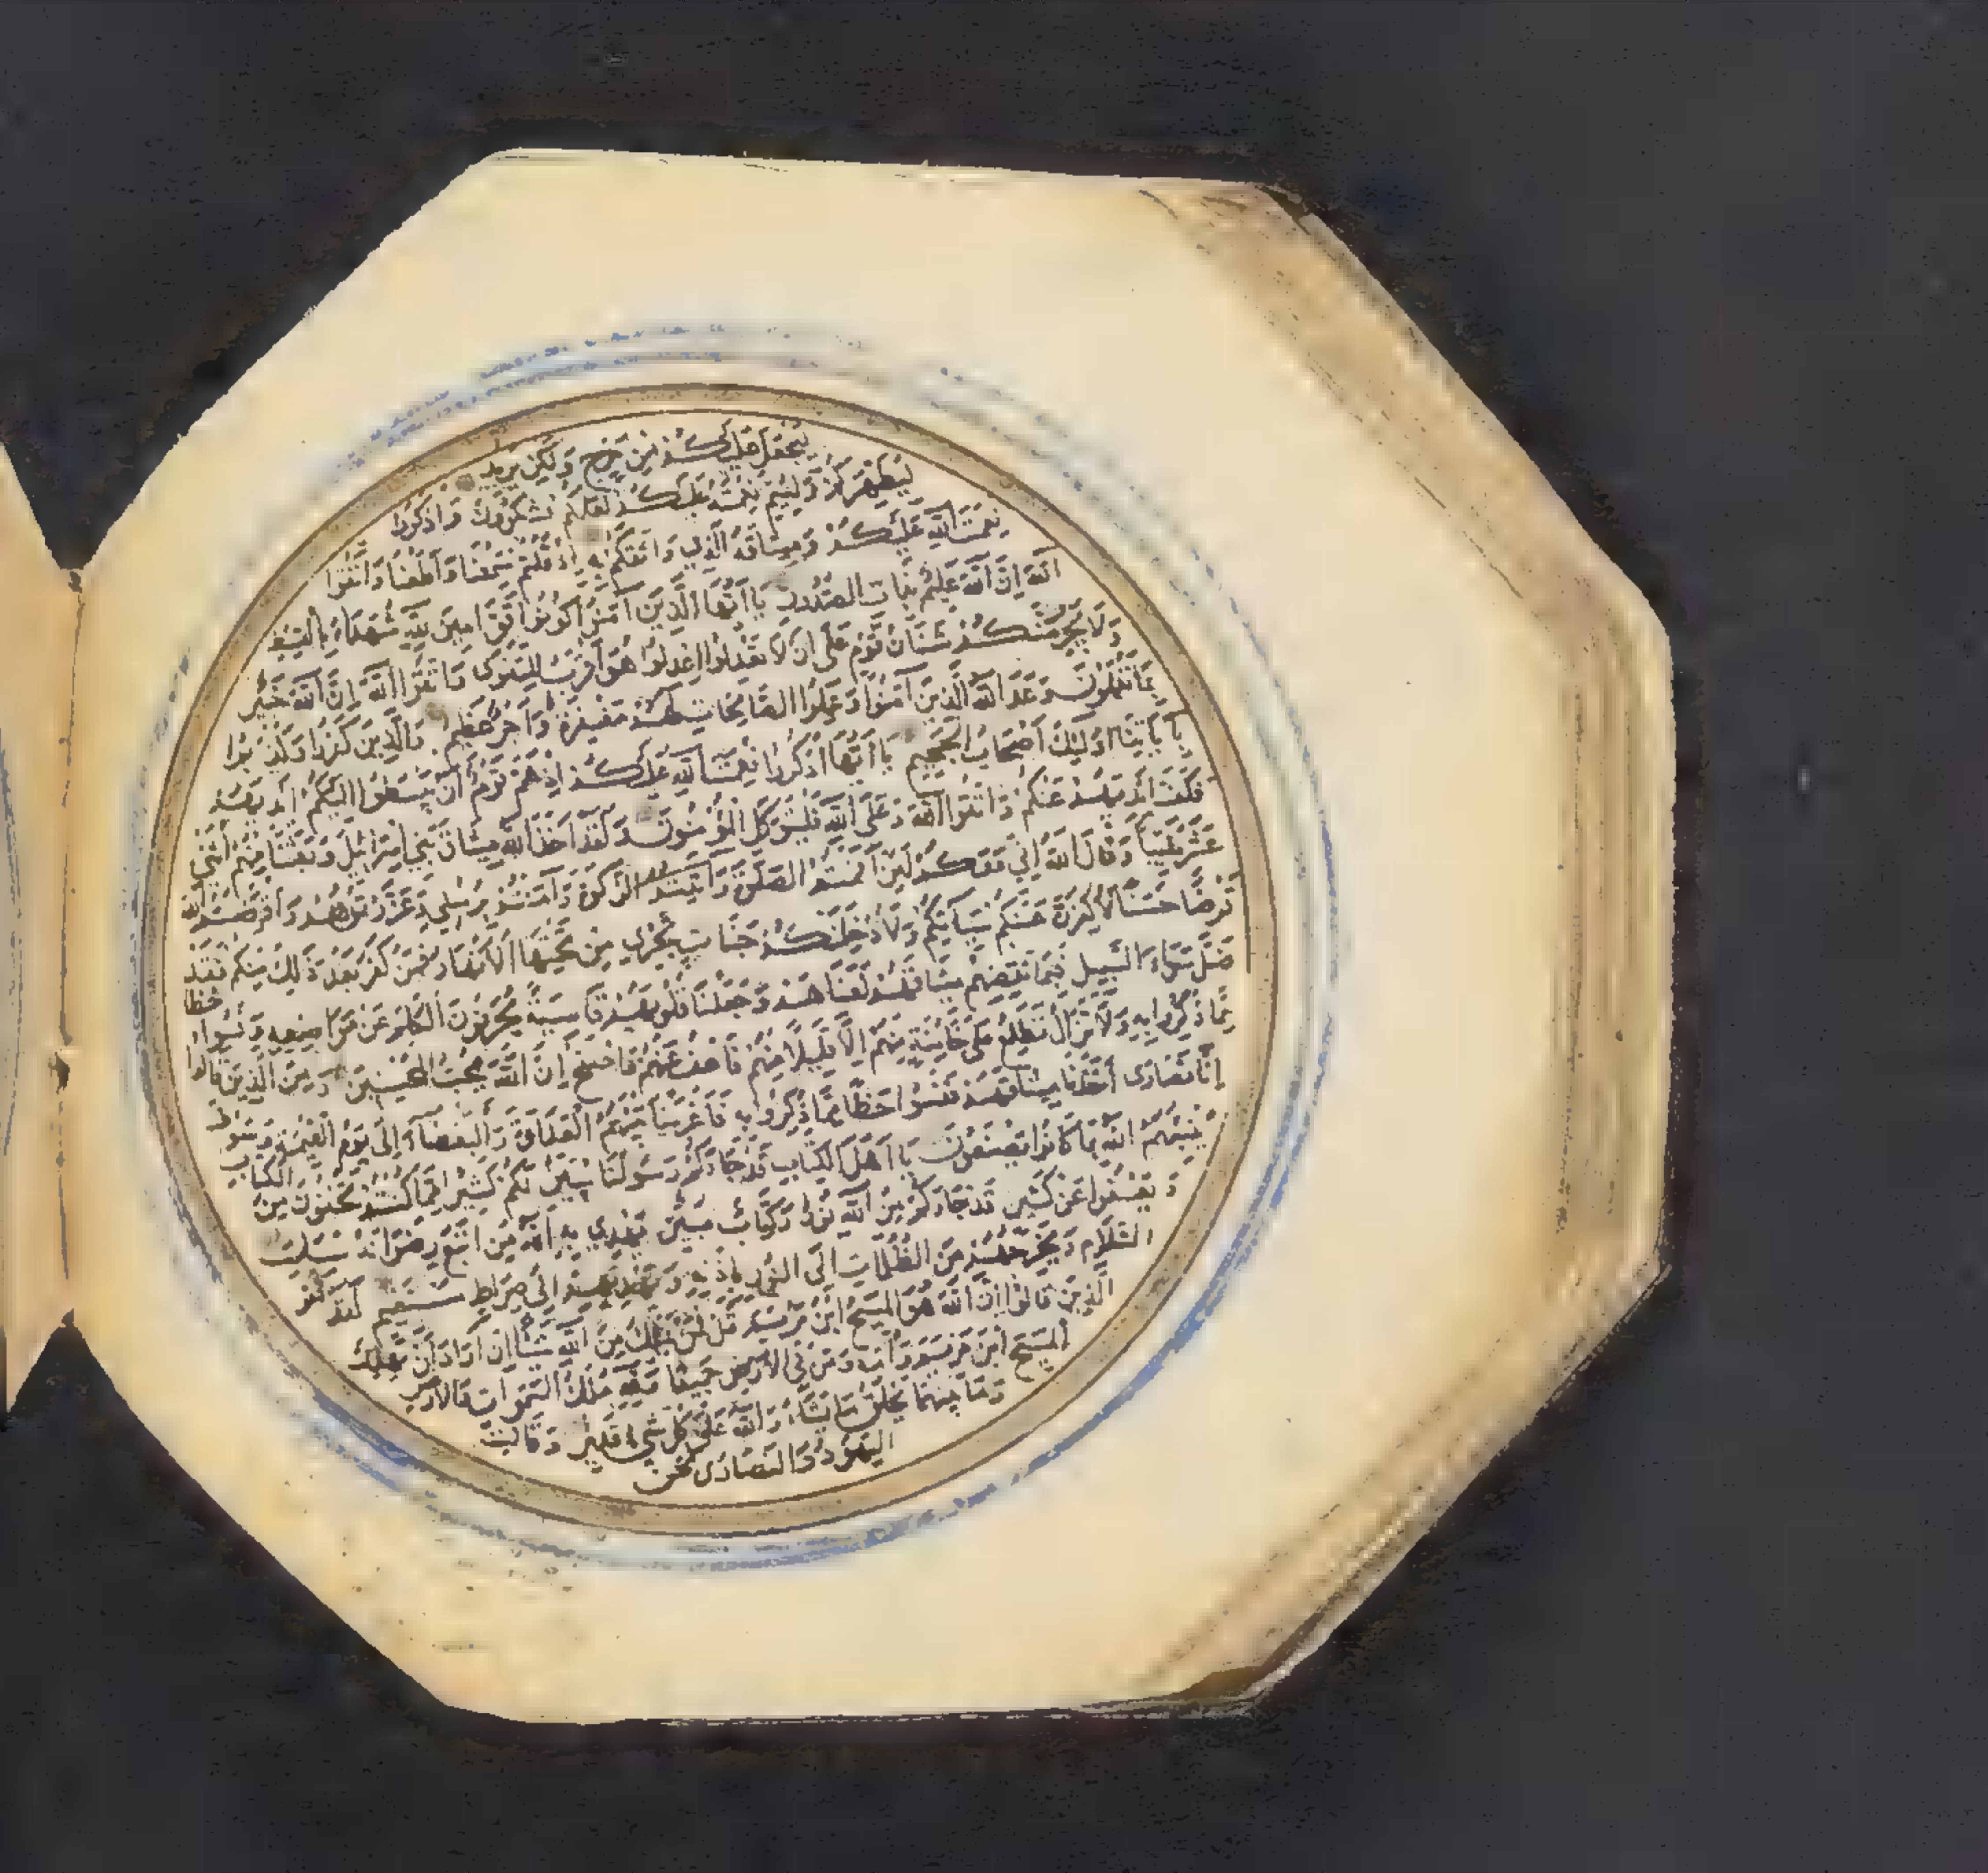 ليجعل عليكم من حرج ولكن يريد
ليطهركم وليتم نعمته عليكم لعلكم تشكرون واذكروا
نعمت الله عليكم وميثاقه الذي واثقكم به اذ قلتم سمعنا واطعنا واتقوا
الله ان الله عليم بذات الصدور يا ايها الذين آمنوا كونوا قوامين لله شهداء بالقسط
ولا يجرمنكم شنآن قوم على ان لا تعدلوا اعدلوا هو اقرب للتقوى واتقوا الله ان الله خبير
بما تعملون وعد الله الذين آمنوا وعملوا الصالحات لهم مغفرة واجر عظيم والذين كفروا وكذبوا
بآياتنا اولئك اصحاب الجحيم يا ايها اذكروا نعمت الله عليكم اذ هم قوم ان يبسطوا اليكم ايديهم
فكف ايديهم عنكم واتقوا الله وعلى الله فليتوكل المؤمنون ولقد اخذ الله ميثاق بني اسرائيل وبعثنا منهم اثني
عشر نقيبا وقال الله اني معكم لئن اقمتم الصلوة وآتيتم الزكوة وآمنتم برسلي وعزرتموهم واقرضتم الله
قرضا حسنا لاكفرن عنكم سيآتكم ولادخلنكم جنات تجري من تحتها الانهار فمن كفر بعد ذلك منكم فقد
ضل سواء السبيل فبما نقضهم ميثاقهم لعناهم وجعلنا قلوبهم قاسية يحرفون الكلم عن مواضعه ونسوا حظا
مما ذكروا به ولا تزال تطلع على خائنة منهم الا قليلا منهم فاعف عنهم واصفح ان الله يحب المحسنين ومن الذين قالوا
انا نصارى اخذنا ميثاقهم فنسوا حظا مما ذكروا به فاغرينا بينهم العداوة والبغضاء الى يوم القيمة وسوف
ينبئهم الله بما كانوا يصنعون يا اهل الكتاب قد جاءكم رسولنا يبين لكم كثيرا مما كنتم تخفون من الكتاب
ويعفوا عن كثير قد جاءكم من الله نور وكتاب مبين يهدي به الله من اتبع رضوانه سبل
السلام ويخرجهم من الظلمات الى النور باذنه ويهديهم الى صراط مستقيم لقد كفر
الذين قالوا ان الله هو المسيح ابن مريم قل فمن يملك من الله شيئا ان اراد ان يهلك
المسيح ابن مريم وامه ومن في الارض جميعا ولله ملك السموات والارض
وما بينهما يخلق ما يشاء والله على كل شيء قدير وقالت
اليهود والنصارى نحن